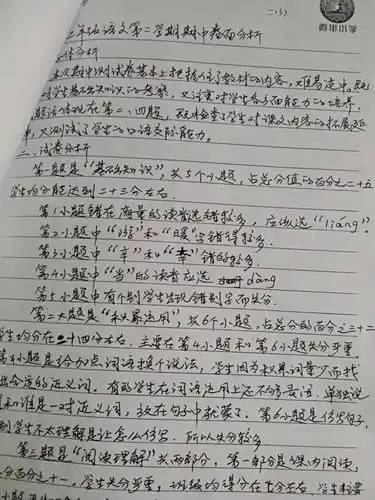 二(3)
百角小学
二年级语文第二学期期中卷面分析
一、总体分析
本次期中测试卷基本上把握住了教材的内容，难易适中。既
对学生基础知识的考察，又注重对学生各方面能力的培养。
题活体现在第二、四题，既检查了学生对课文内容的拓展延
伸，又测试了学生的口语交际能力。
二、试卷分析
第一题是“基础知识”，共5个小题，占总分值的百分之二十五
学生均分能达到二十三分左右。
第1小题错在商量的读音选错较多，应该选“liáng”。
第2小题中“游”和“暖”字错得较多。
第3小题中“辛”和“幸”错的较多。
第4小题中“当”的读音应选 dàng
第5小题中有个别学生出现错别字而失分。
第二大题是“积累运用”，共6个小题，占总分的百分之三十二
学生均分在二十四分左右。主要在第4小题和第6小题失分严重
第4小题是给加点词语换个说法，学生因为积累词量少而找
出合适的近义词，有的学生在词语运用上还不够灵活。单独说
和谁是一对近义词，放在句子中就蒙了。第6小题是仿写句子，
别学生不太理解是让怎么仿写。所以失分较多
第三题是“阅读理解”共两部分，第一部分是课内阅读，
分百分之十一。学生失分严重，班级均得分在七分左右。学生